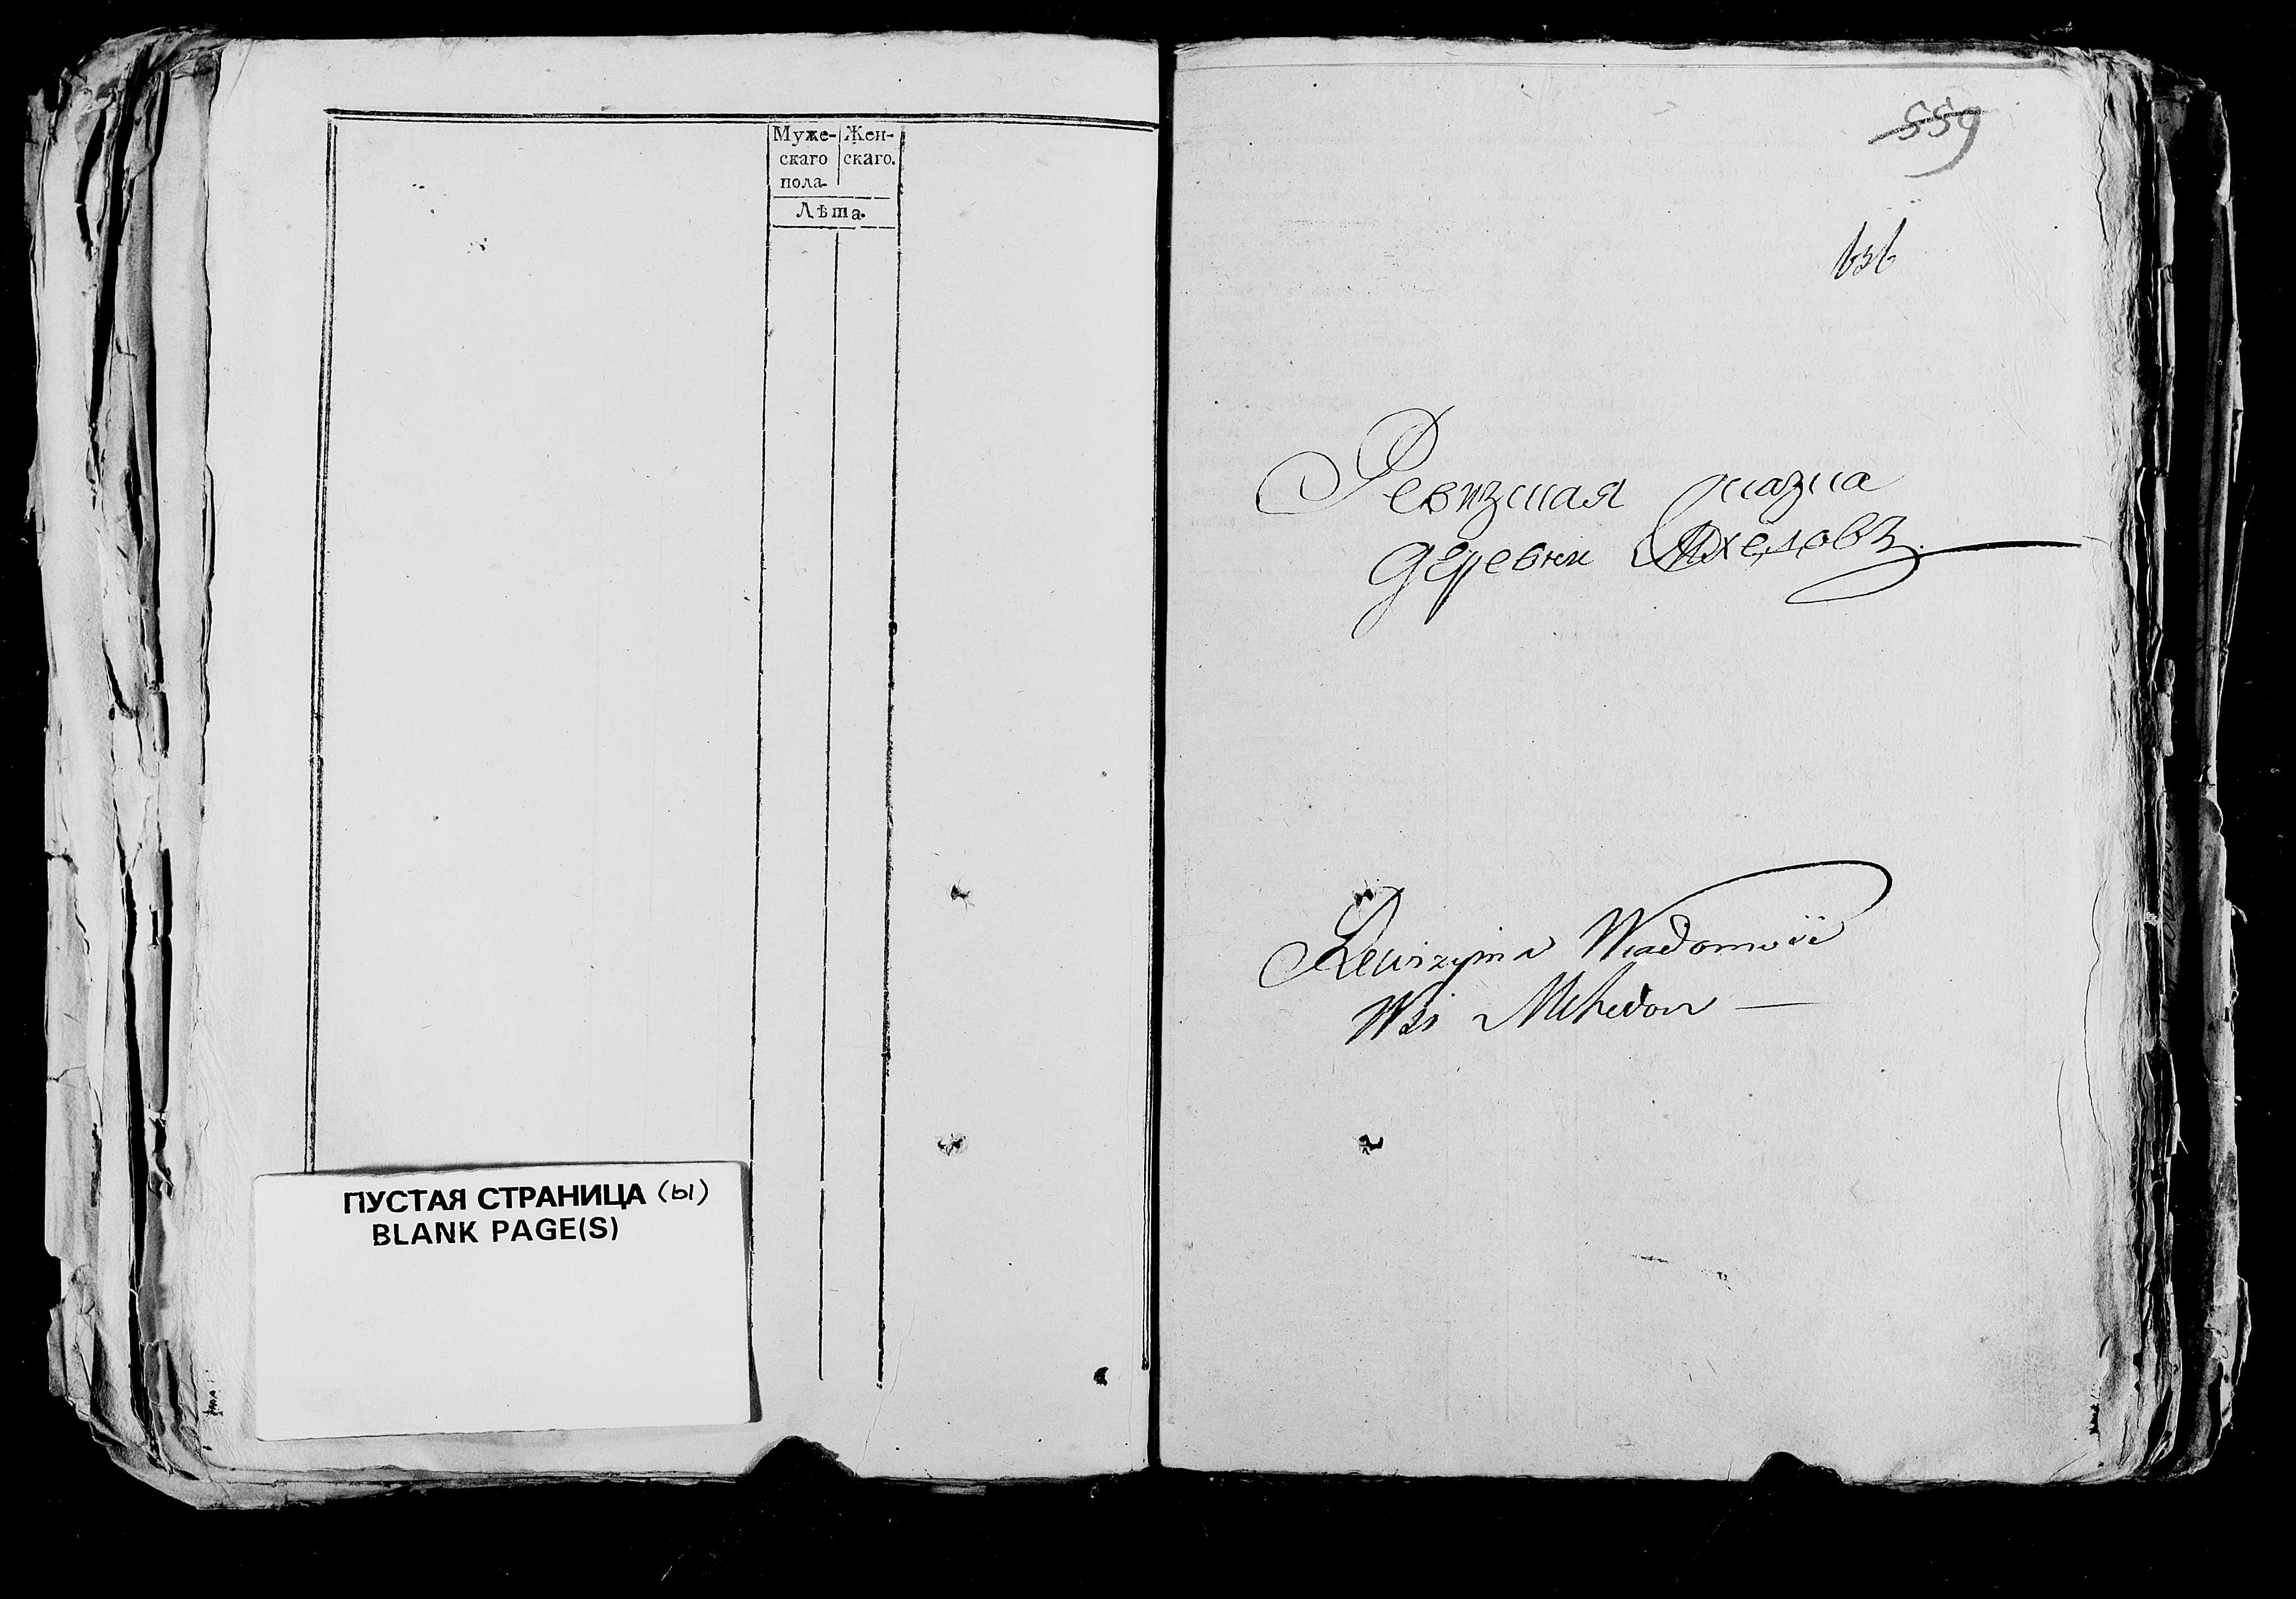 Муже- Жен-
скаго скаго.
пола.
Лѣта.
ПУСТАЯ СТРАНИЦА (ы)
BLANK PAGE(S)
559
656
Ревизская сказка
деревни Мхедовъ
Rewizyina Wiadomość
Wsi Mchedow